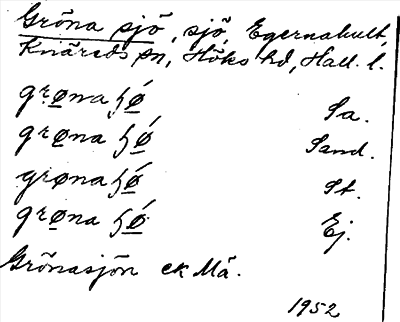 Gröna sjö, sjö, Egernahult,
Knäreds sn, Höks hd, Hall. l.
grøna ɧǿ Sa.
grøna ɧǿ Sand.
grøna ɧǿ St.
grøna ɧǿ Ej.
Grönasjön ek Mä.
1952